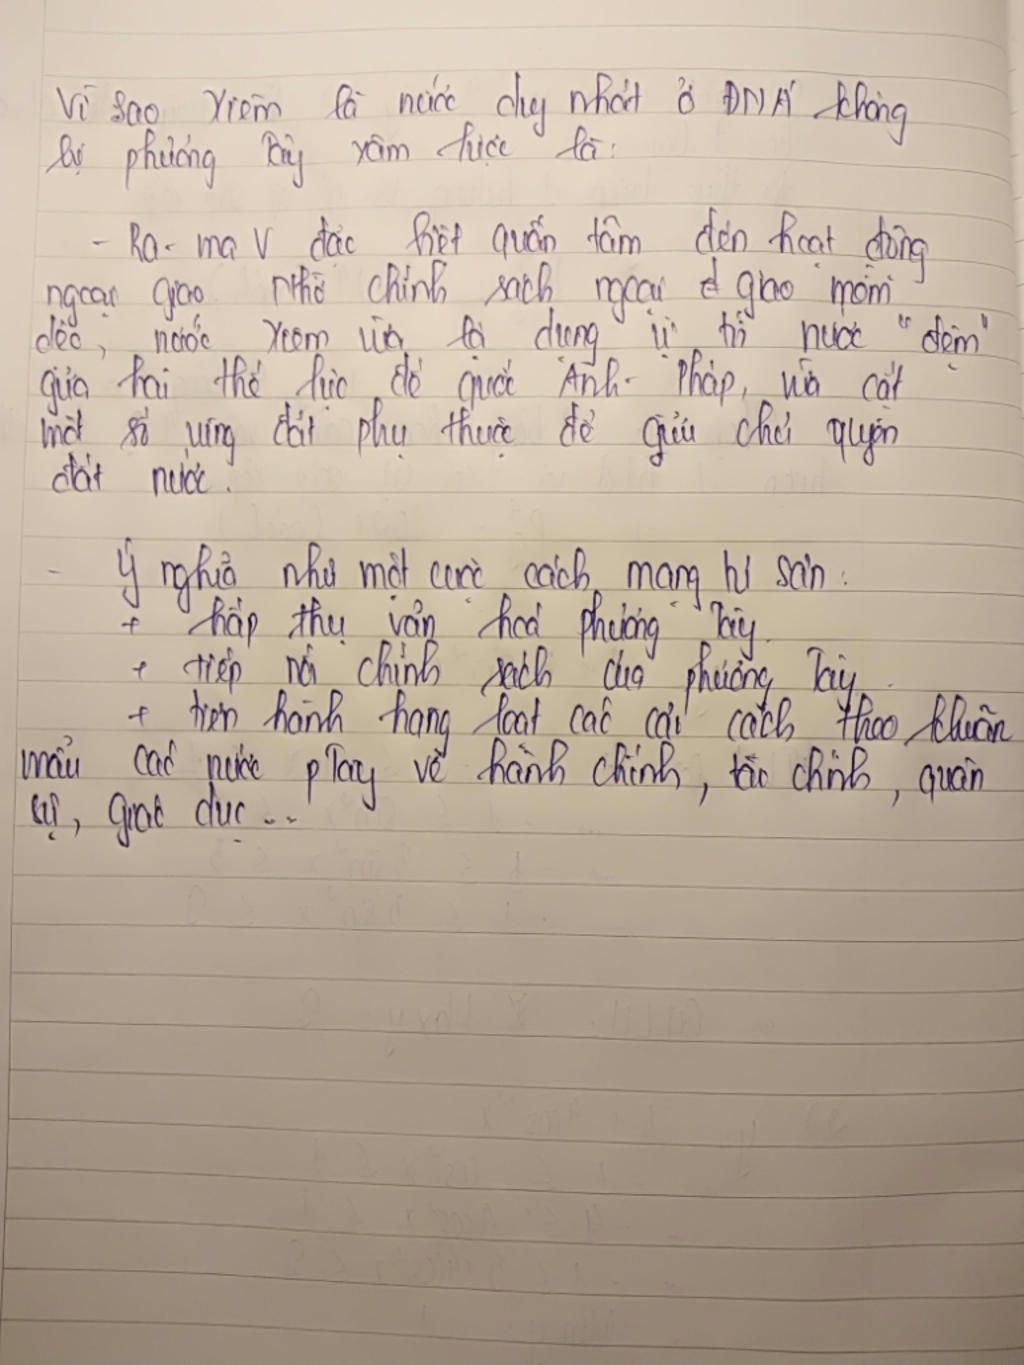 Vì sao Xiêm là nước duy nhất ở ĐNÁ không
bị phương Tây xâm lược là:
- Ra-ma V đặc biệt quan tâm đến hoạt động
ngoại giao nhờ chính sách ngoại giao mềm
dẻo, nước Xiêm vừa lợi dụng vị trí nước "đệm"
giữa hai thế lực đế quốc Anh - Pháp, vừa cắt
một số vùng đất phụ thuộc để giữ chủ quyền
đất nước.
- Ý nghĩa như một cuộc cách mạng tư sản:
+ hấp thụ văn hoá phương Tây.
+ tiếp nối chính sách của phương Tây.
+ tiến hành hàng loạt các cải cách theo khuân
mẫu các nước pTây về hành chính, tài chính, quân
sự, giáo dục...